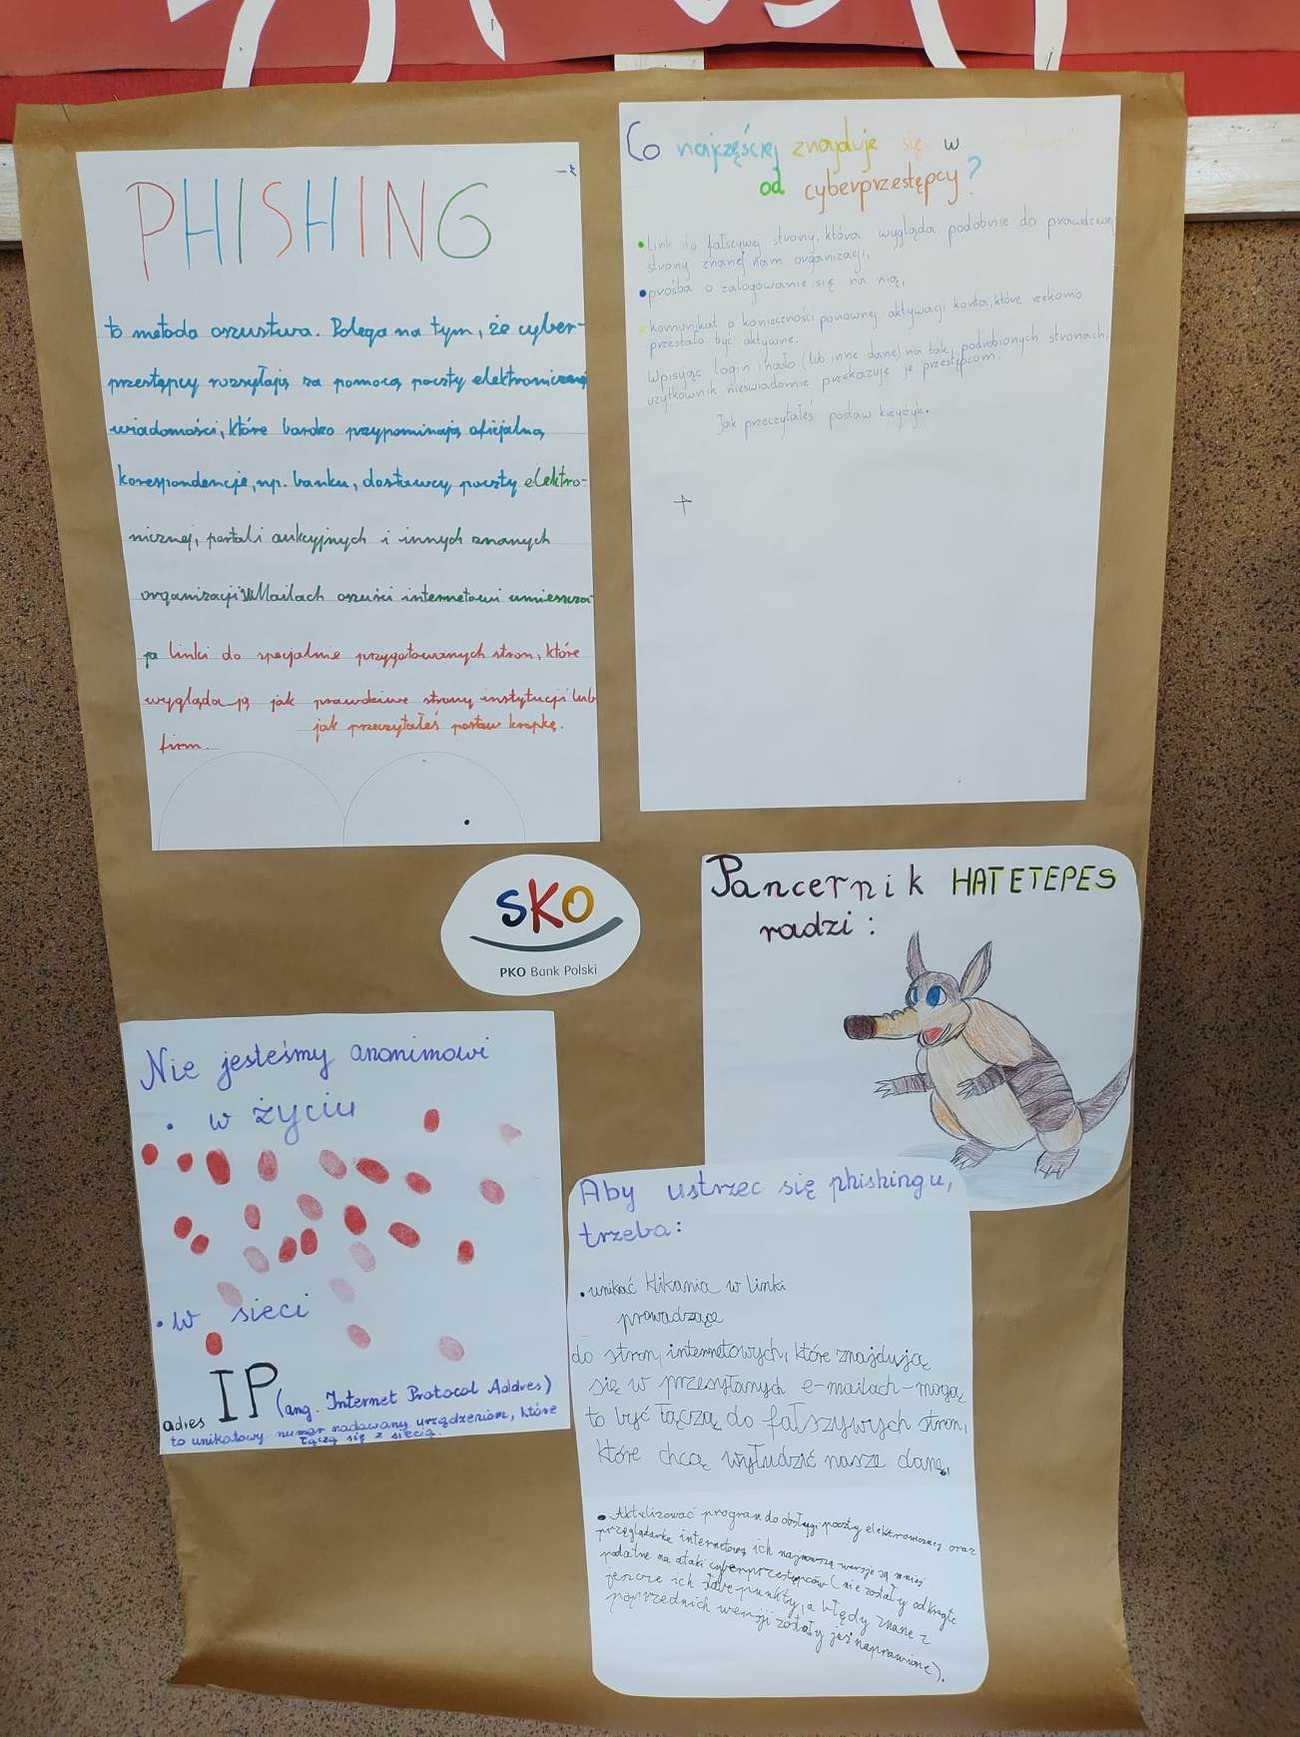 PHISHING
to metoda oszustwa. Polega na tym, że cyber-
przestępcy rozsyłają za pomocą poczty elektronicznej
wiadomości, które bardzo przypominają oficjalną
korespondencję, np. banku, dostawcy poczty elektro-
nicznej, portali aukcyjnych i innych znanych
organizacji. W Mailach oszuści internetowi umieszcza-
ją linki do specjalnie przygotowanych stron, które
wyglądają jak prawdziwe strony instytucji lub
firm.
jak przeczytałeś postaw kropkę.
Co najczęściej znajduje się w
od cyberprzestępcy?
• link do fałszywej strony, która wygląda podobnie do prawdziwej
strony znanej nam organizacji,
• prośba o zalogowanie się na nią,
• komunikat o konieczności ponownej aktywacji konta, które rzekomo
przestało być aktywne.
Wpisując login i hasło (lub inne dane) na tak podrobionych stronach,
użytkownik nieświadomie przekazuje je przestępcom.
Jak przeczytałeś postaw krzyżyk.
SKO
PKO Bank Polski
Pancernik HATETEPES
radzi:
Nie jesteśmy anonimowi
• w życiu
• w sieci
adres IP (ang. Internet Protocol Addres)
to unikatowy numer nadawany urządzeniom, które
łączą się z siecią.
Aby ustrzec się phishingu,
trzeba:
• unikać klikania w linki
prowadzące
do stron internetowych, które znajdują
się w przesyłanych e-mailach-mogą
to być łączą do fałszywych stron,
które chcą wyłudzić nasze dane,
• Aktulizować program do obsługi poczty elektronicznej oraz
przeglądarkę internetową ich najnowszą wersje są mniej
podatne na ataki cyberprzestępców (nie zostały odkryte
jeszcze ich słabe punkty, a błędy znane z
poprzednich wersji zostały już naprawione).